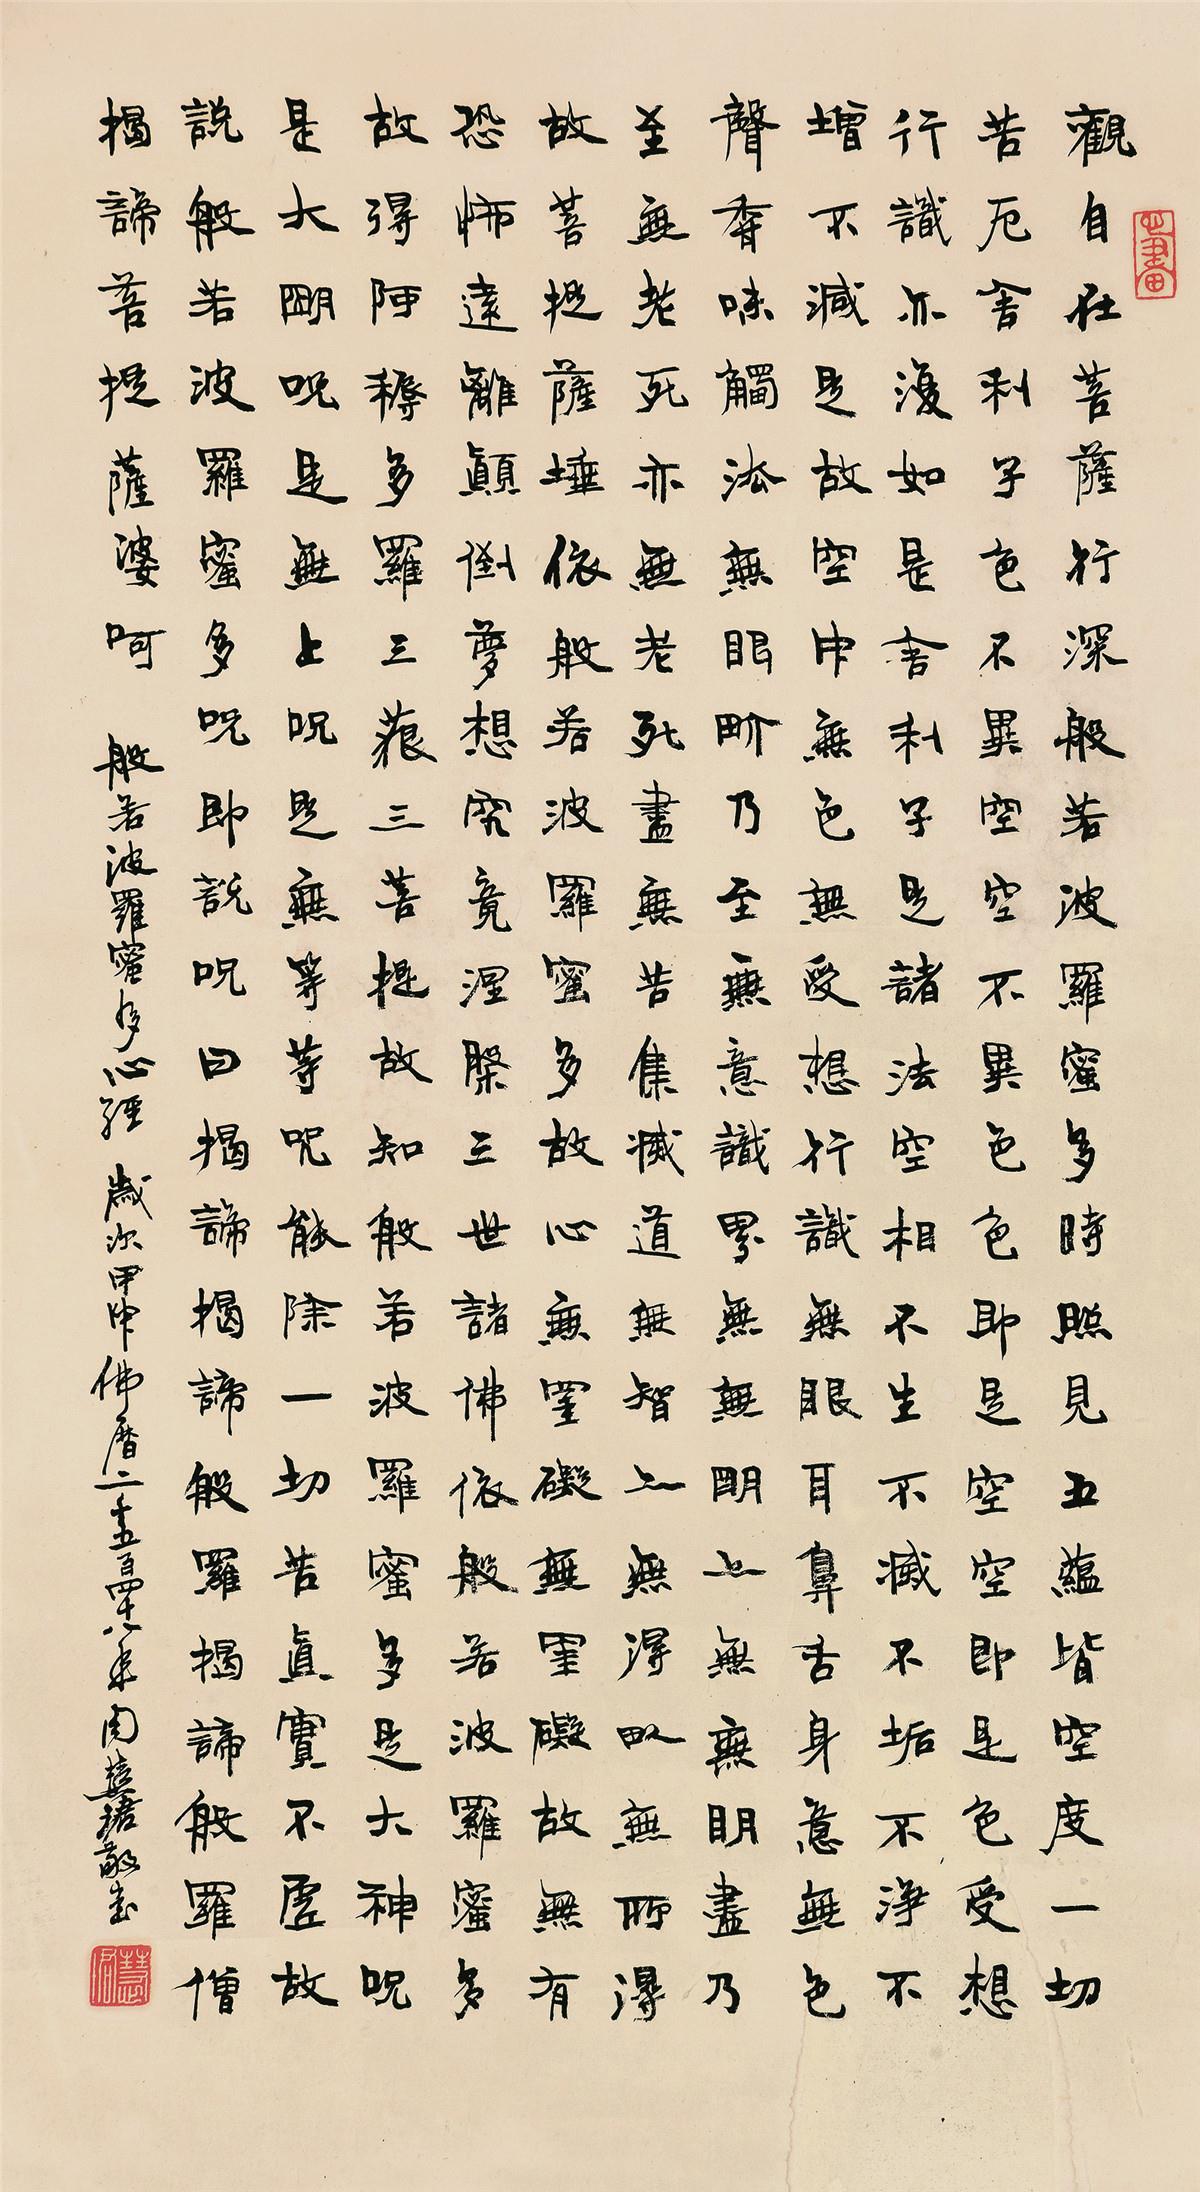 觀自在菩薩行深般若波羅蜜多時照見五蘊皆空度一切
苦厄舍利子色不異空空不異色色即是空空即是色受想
行識亦復如是舍利子是諸法空相不生不滅不垢不淨不
增不減是故空中無色無受想行識無眼耳鼻舌身意無色
聲香味觸法無眼界乃至無意識界無無明亦無無明盡乃
至無老死亦無老死盡無苦集滅道無智亦無得以無所得
故菩提薩埵依般若波羅蜜多故心無罣礙無罣礙故無有
恐怖遠離顛倒夢想究竟涅槃三世諸佛依般若波羅蜜多
故得阿耨多羅三藐三菩提故知般若波羅蜜多是大神咒
是大明咒是無上咒是無等等咒能除一切苦真實不虛故
說般若波羅蜜多咒即說咒曰揭諦揭諦般羅揭諦般羅僧
揭諦菩提薩婆呵
般若波羅蜜多心經 歲次甲申佛曆二千五百四十八年周慧珺敬書
慧珺